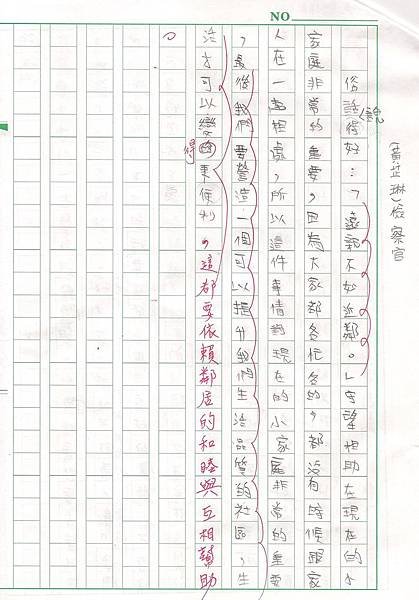 NO.
黃芷琳 檢察官
俗話得好：「遠親不如近鄰。」守望相助在現在的小
說
家庭非常的重要，因為大家都各忙各的，都沒有時候跟家
人在一起相處，所以這件事情的現在的小家庭非常的重要
，最後我們要營造一個可以提升我們生活品質的社區，生
活才可以變的更便利，這都要依賴鄰居的和睦與互相幫助
得
。